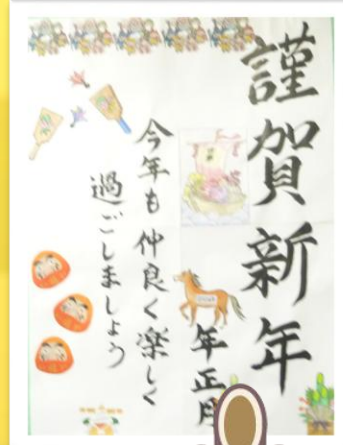 謹賀新年
年正月
今年も仲良く楽しく
過ごしましょう